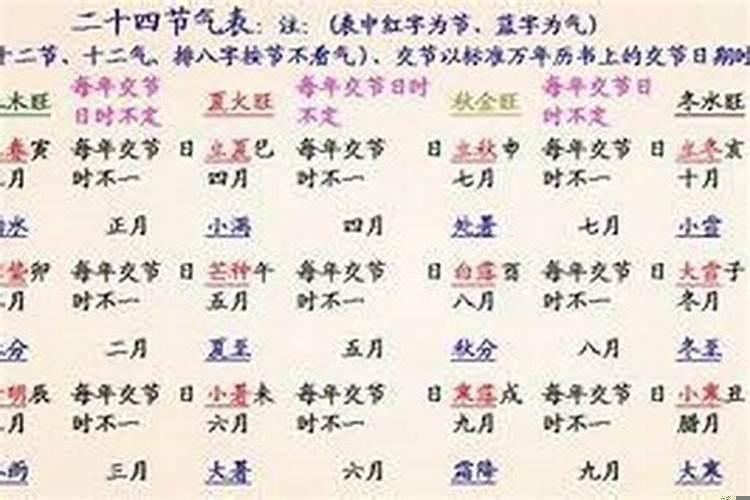 二十四节气表：注：（表中红字为节、蓝字为气）
十二节、十二气、排八字按节不看气）、交节以标准万年历书上的交节日期时
木旺 每年交节日时不定 夏火旺 每年交节日时不定 秋金旺 每年交节日时不定 冬水旺
春寅 每年交节 日 立夏巳 每年交节 日 立秋申 每年交节 日 立冬亥
月 时不一 四月 时不一 七月 时不一 十月
水 正月 小满 四月 处暑 七月 小雪
蛰卯 每年交节 日 芒种午 每年交节 日 白露酉 每年交节 日 大雪子
月 时不一 五月 时不一 八月 时不一 冬月
分 二月 夏至 五月 秋分 八月 冬至
明辰 每年交节 日 小暑未 每年交节 日 寒露戌 每年交节 日 小寒丑
月 时不一 六月 时不一 九月 时不一 腊月
雨 三月 大暑 六月 霜降 九月 大寒